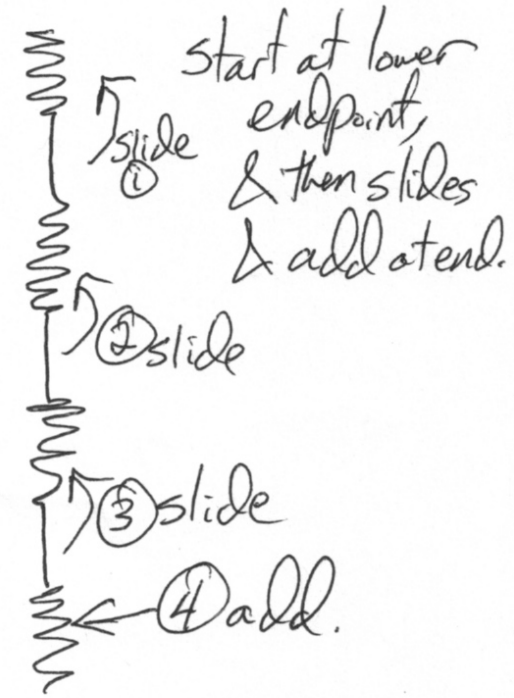 start at lower
endpoint,
& then slides
& add at end.
slide
①
② slide
③ slide
④ add.